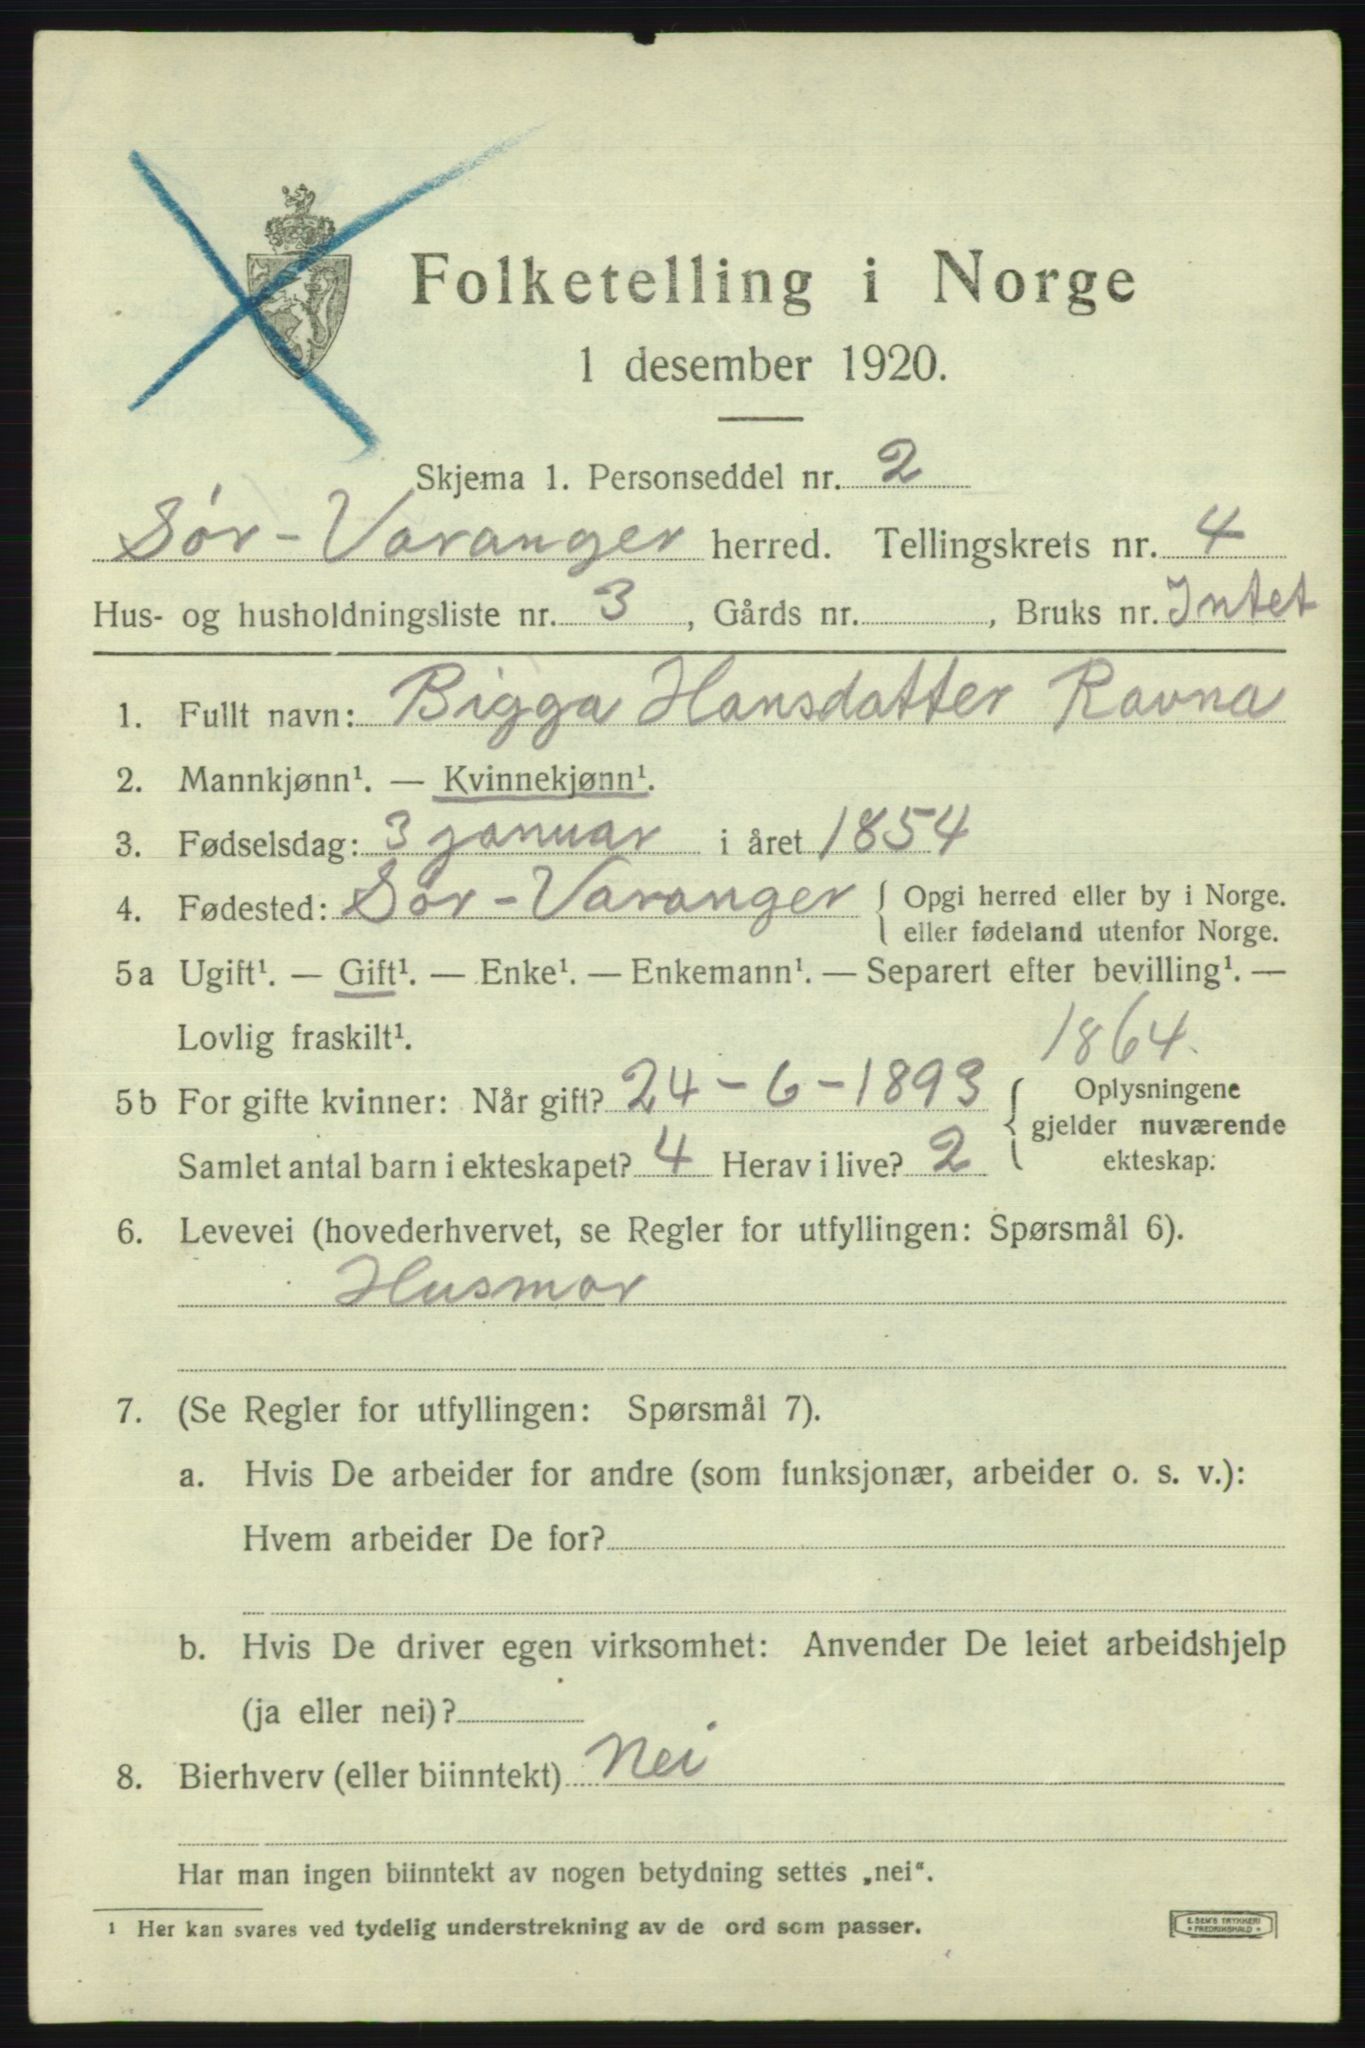 Folketelling i Norge
1 desember 1920.
Skjema 1. Personseddel nr. 2
Sør-Varanger herred. Tellingskrets nr. 4
Hus- og husholdningsliste nr. 3, Gårds nr. , Bruks nr. Intet
1. Fullt navn: Bigga Hansdatter Ravna
2. Mannkjønn¹. — Kvinnekjønn¹.
3. Fødselsdag: 3 januar i året 1854
4. Fødested: Sør-Varanger { Opgi herred eller by i Norge.
eller fødeland utenfor Norge.
5a Ugift¹. — Gift¹. — Enke¹. — Enkemann¹. — Separert efter bevilling¹. —
Lovlig fraskilt¹.
1864.
5b For gifte kvinner: Når gift? 24-6-1893 { Oplysningene
gjelder nuværende
Samlet antal barn i ekteskapet? 4 Herav i live? 2 ekteskap.
6. Levevei (hovederhvervet, se Regler for utfyllingen: Spørsmål 6).
Husmor
7. (Se Regler for utfyllingen: Spørsmål 7).
a. Hvis De arbeider for andre (som funksjonær, arbeider o. s. v.):
Hvem arbeider De for?
b. Hvis De driver egen virksomhet: Anvender De leiet arbeidshjelp
(ja eller nei)?
8. Bierhverv (eller biinntekt) Nei
Har man ingen biinntekt av nogen betydning settes „nei“.
¹ Her kan svares ved tydelig understrekning av de ord som passer.
E. SEM'S TRYKKERI
FREDRIKSHALD